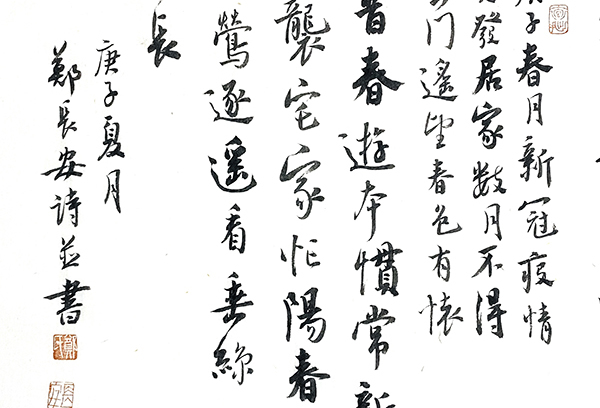 庚子春月新冠疫情
發居家數月不得
門遙望春色有懷
昔春遊本慣常新
襲宅家忙陽春
鶯逐遥看垂絲
長
庚子夏月
鄭長安詩並書